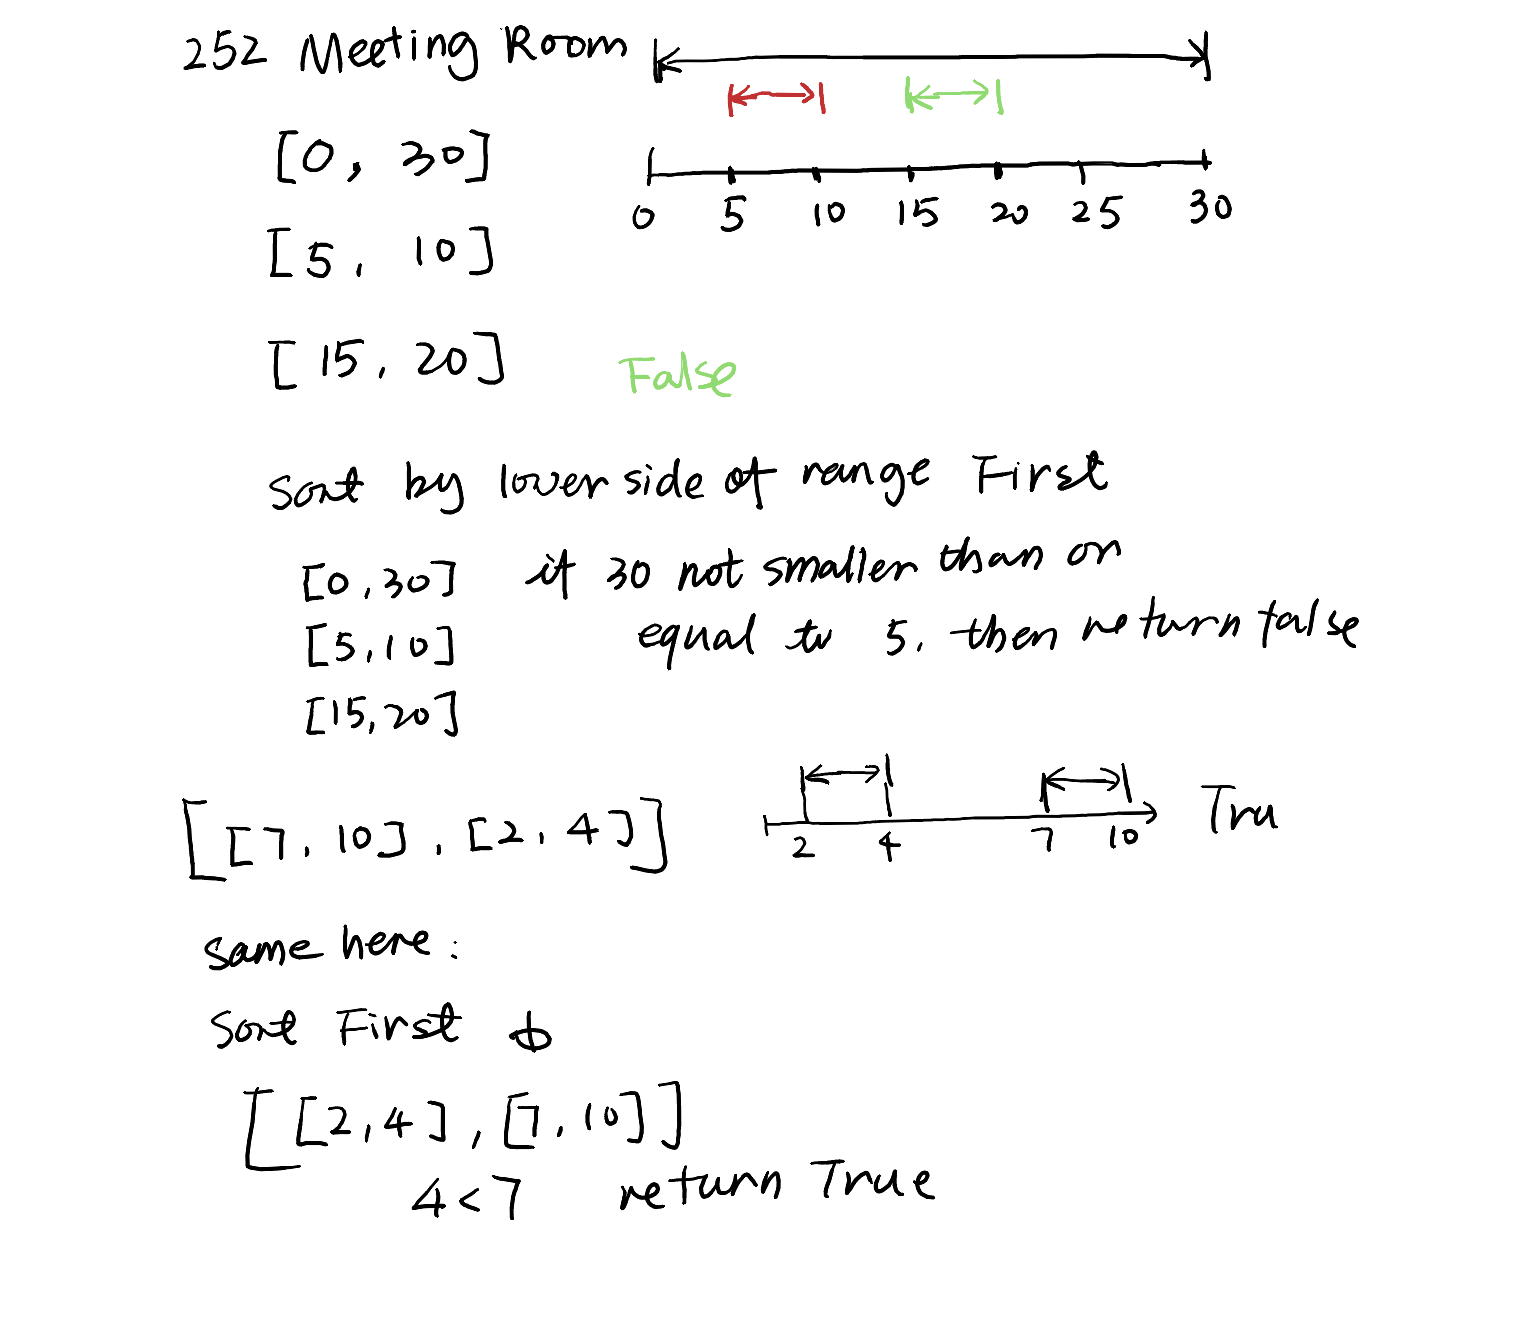 252 Meeting Room
[0, 30]
0 5 10 15 20 25 30
[5, 10]
[15, 20]
False
Sort by lower side of range First
[0,30] if 30 not smaller than or
[5,10] equal to 5, then return false
[15,20]
[[7, 10], [2, 4]]
2 4 7 10
Tru
same here:
Sort First
[[2,4], [7,10]]
4<7 return True